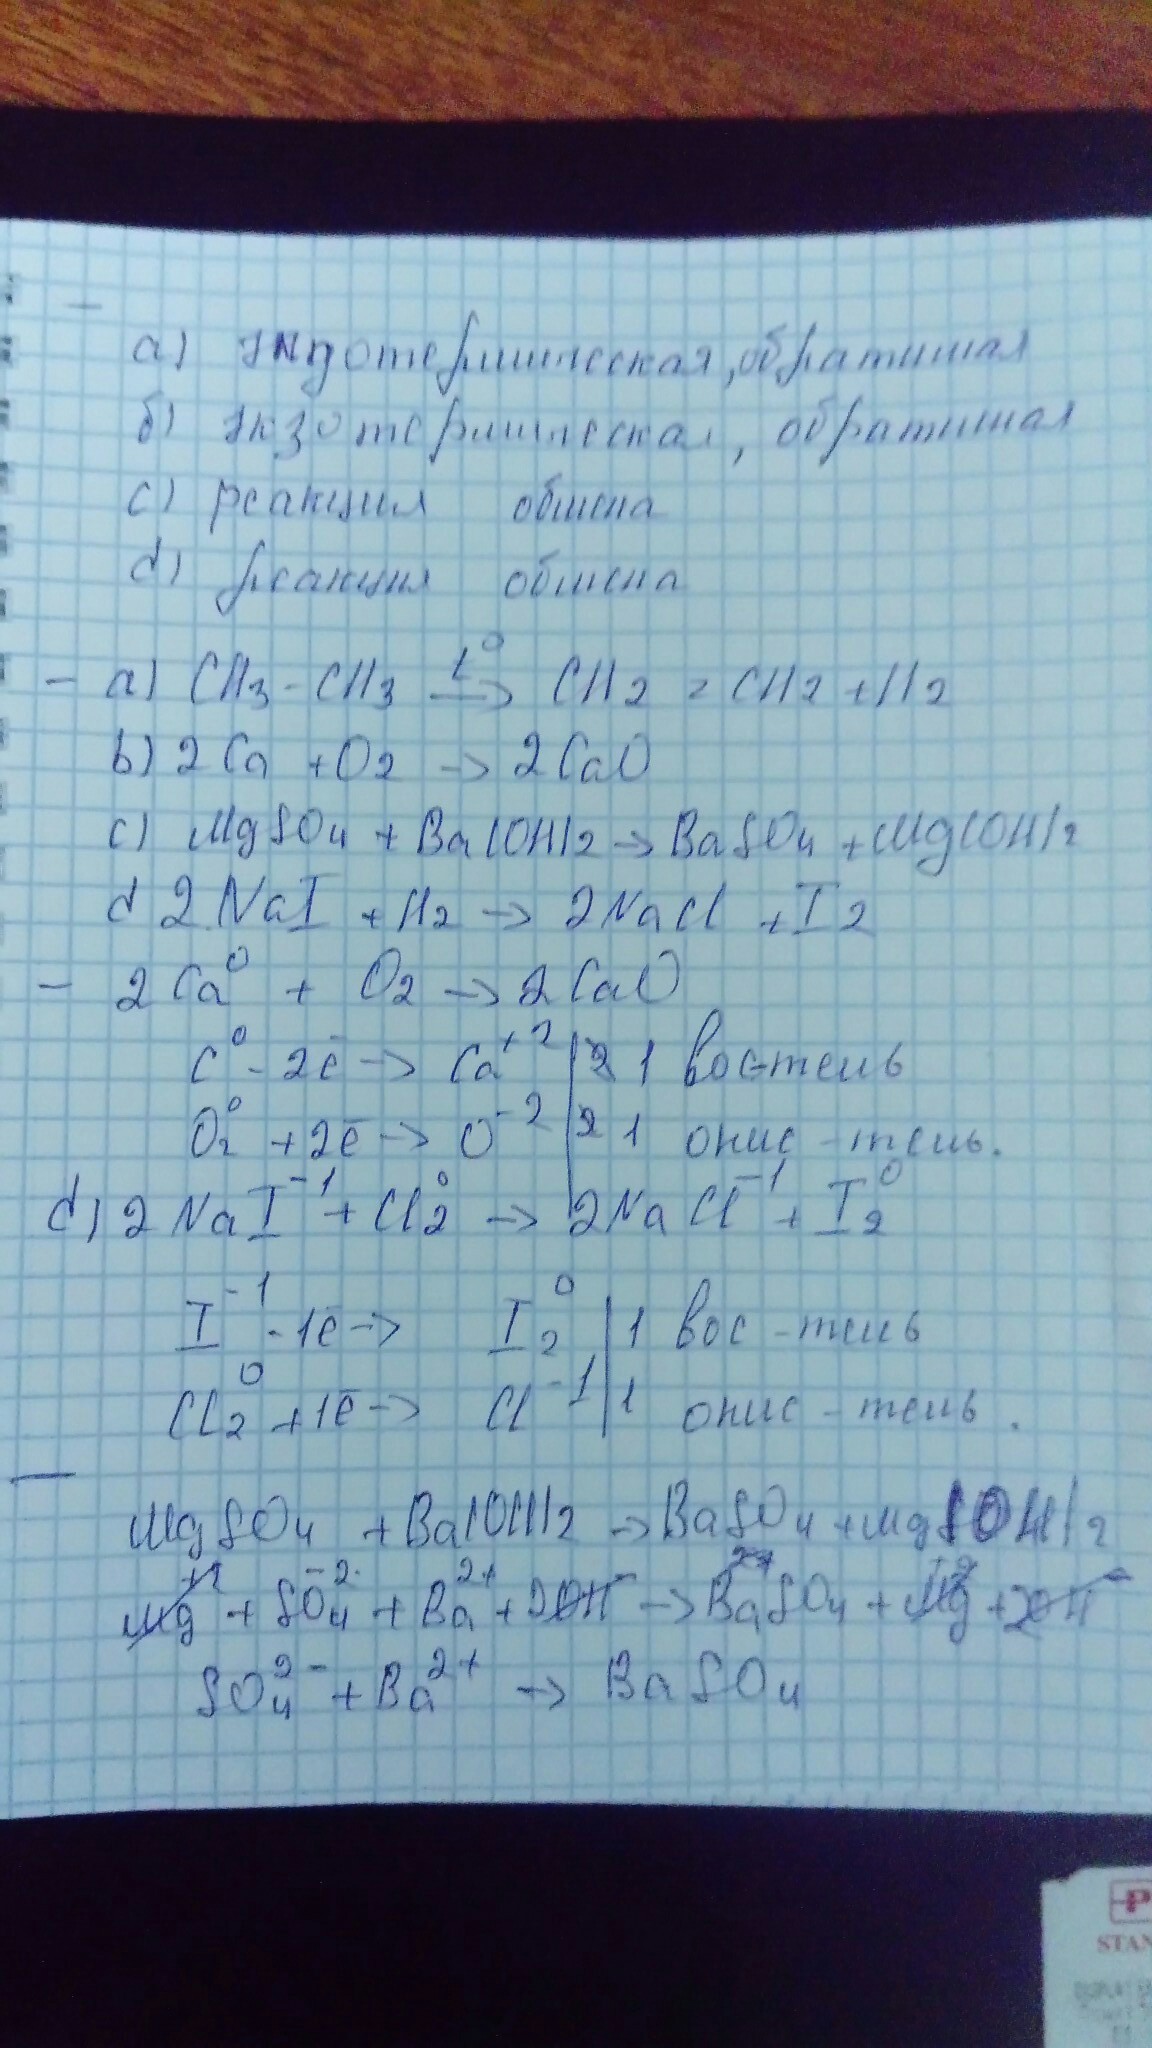 а) эндотермическая, обратимая
б) экзотермическая, обратимая
c) реакция обмена
d) реакция обмена
- a) CH3 - CH3 t° → CH2 = CH2 + H2
b) 2Ca + O2 → 2CaO
c) MgSO4 + Ba(OH)2 → BaSO4 + Mg(OH)2
d 2NaI + H2 → 2NaCl + I2
- 2Ca⁰ + O2 → 2CaO
C⁰ - 2ē → Ca⁺² | 2 1 вос-тель
O2⁰ + 2ē → O⁻² | 2 1 окис-тель.
d) 2NaI⁻¹ + Cl2⁰ → 2NaCl⁻¹ + I2⁰
I⁻¹ - 1ē → I2⁰ | 1 вос-тель
Cl2⁰ + 1ē → Cl⁻¹ | 1 окис-тель.
MgSO4 + Ba(OH)2 → BaSO4 + Mg(OH)2
Mg⁺² + SO4⁻² + Ba²⁺ + 2OH⁻ → BaSO4 + Mg⁺² + 2OH⁻
SO4²⁻ + Ba²⁺ → BaSO4
P
STAN